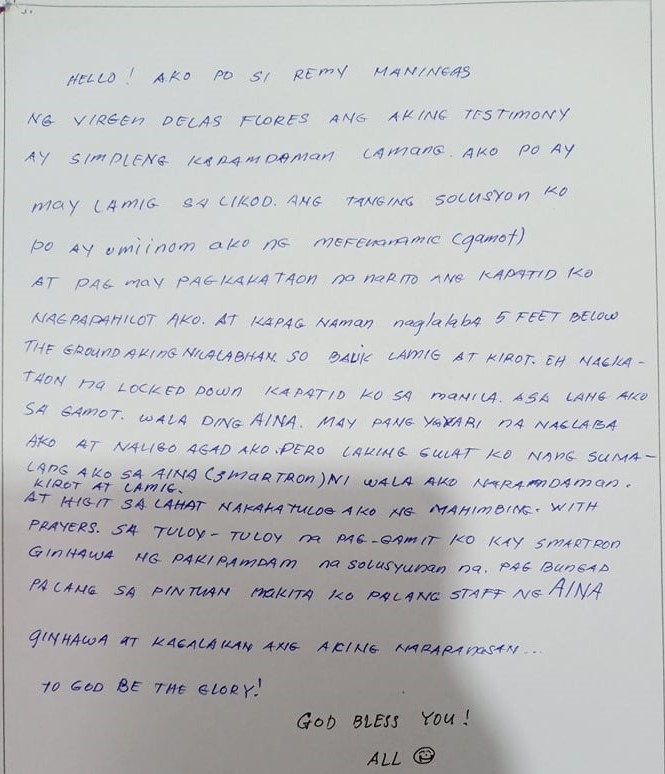 HELLO! AKO PO SI REMY MANINGAS
NG VIRGEN DELAS FLORES ANG AKING TESTIMONY
AY SIMPLENG KARAMDAMAN LAMANG. AKO PO AY
MAY LAMIG SA LIKOD. ANG TANGING SOLUSYON KO
PO AY umiinom ako ng MEFENANAMIC (gamot)
AT PAG MAY PAGKAKATAON na NARITO ANG KAPATID KO
NAGPAPAHILOT AKO. AT KAPAG NAMAN naglalaba 5 FEET BELOW
THE GROUND AKING NILALABHAN. SO BALIK LAMIG AT KIROT. EH NAGKA-
TAON na LOCKED DOWN KAPATID KO SA MANILA. ASA LANG AKO
SA GAMOT. WALA DING AINA. MAY PANGYAYARI NA NAGLABA
AKO AT NALIGO AGAD AKO. PERO LAKING GULAT KO NANG SUMA-
LANG AKO SA AINA (SMARTRON) NI WALA AKO NARAMDAMAN.
KIROT AT LAMIG.
AT HIGIT SA LAHAT NAKAKATULOG AKO NG MAHIMBING. WITH
PRAYERS. SA TULOY-TULOY na PAG-GAMIT KO KAY SMARTRON
GINHAWA NG PAKIRAMDAM na SOLUSYUNAN na. PAG BUNGAD
PALANG SA PINTUAN MAKITA KO PALANG STAFF NG AINA
GINHAWA AT KAGALAKAN ANG AKING NARARANASAN...
TO GOD BE THE GLORY!
GOD BLESS YOU!
ALL